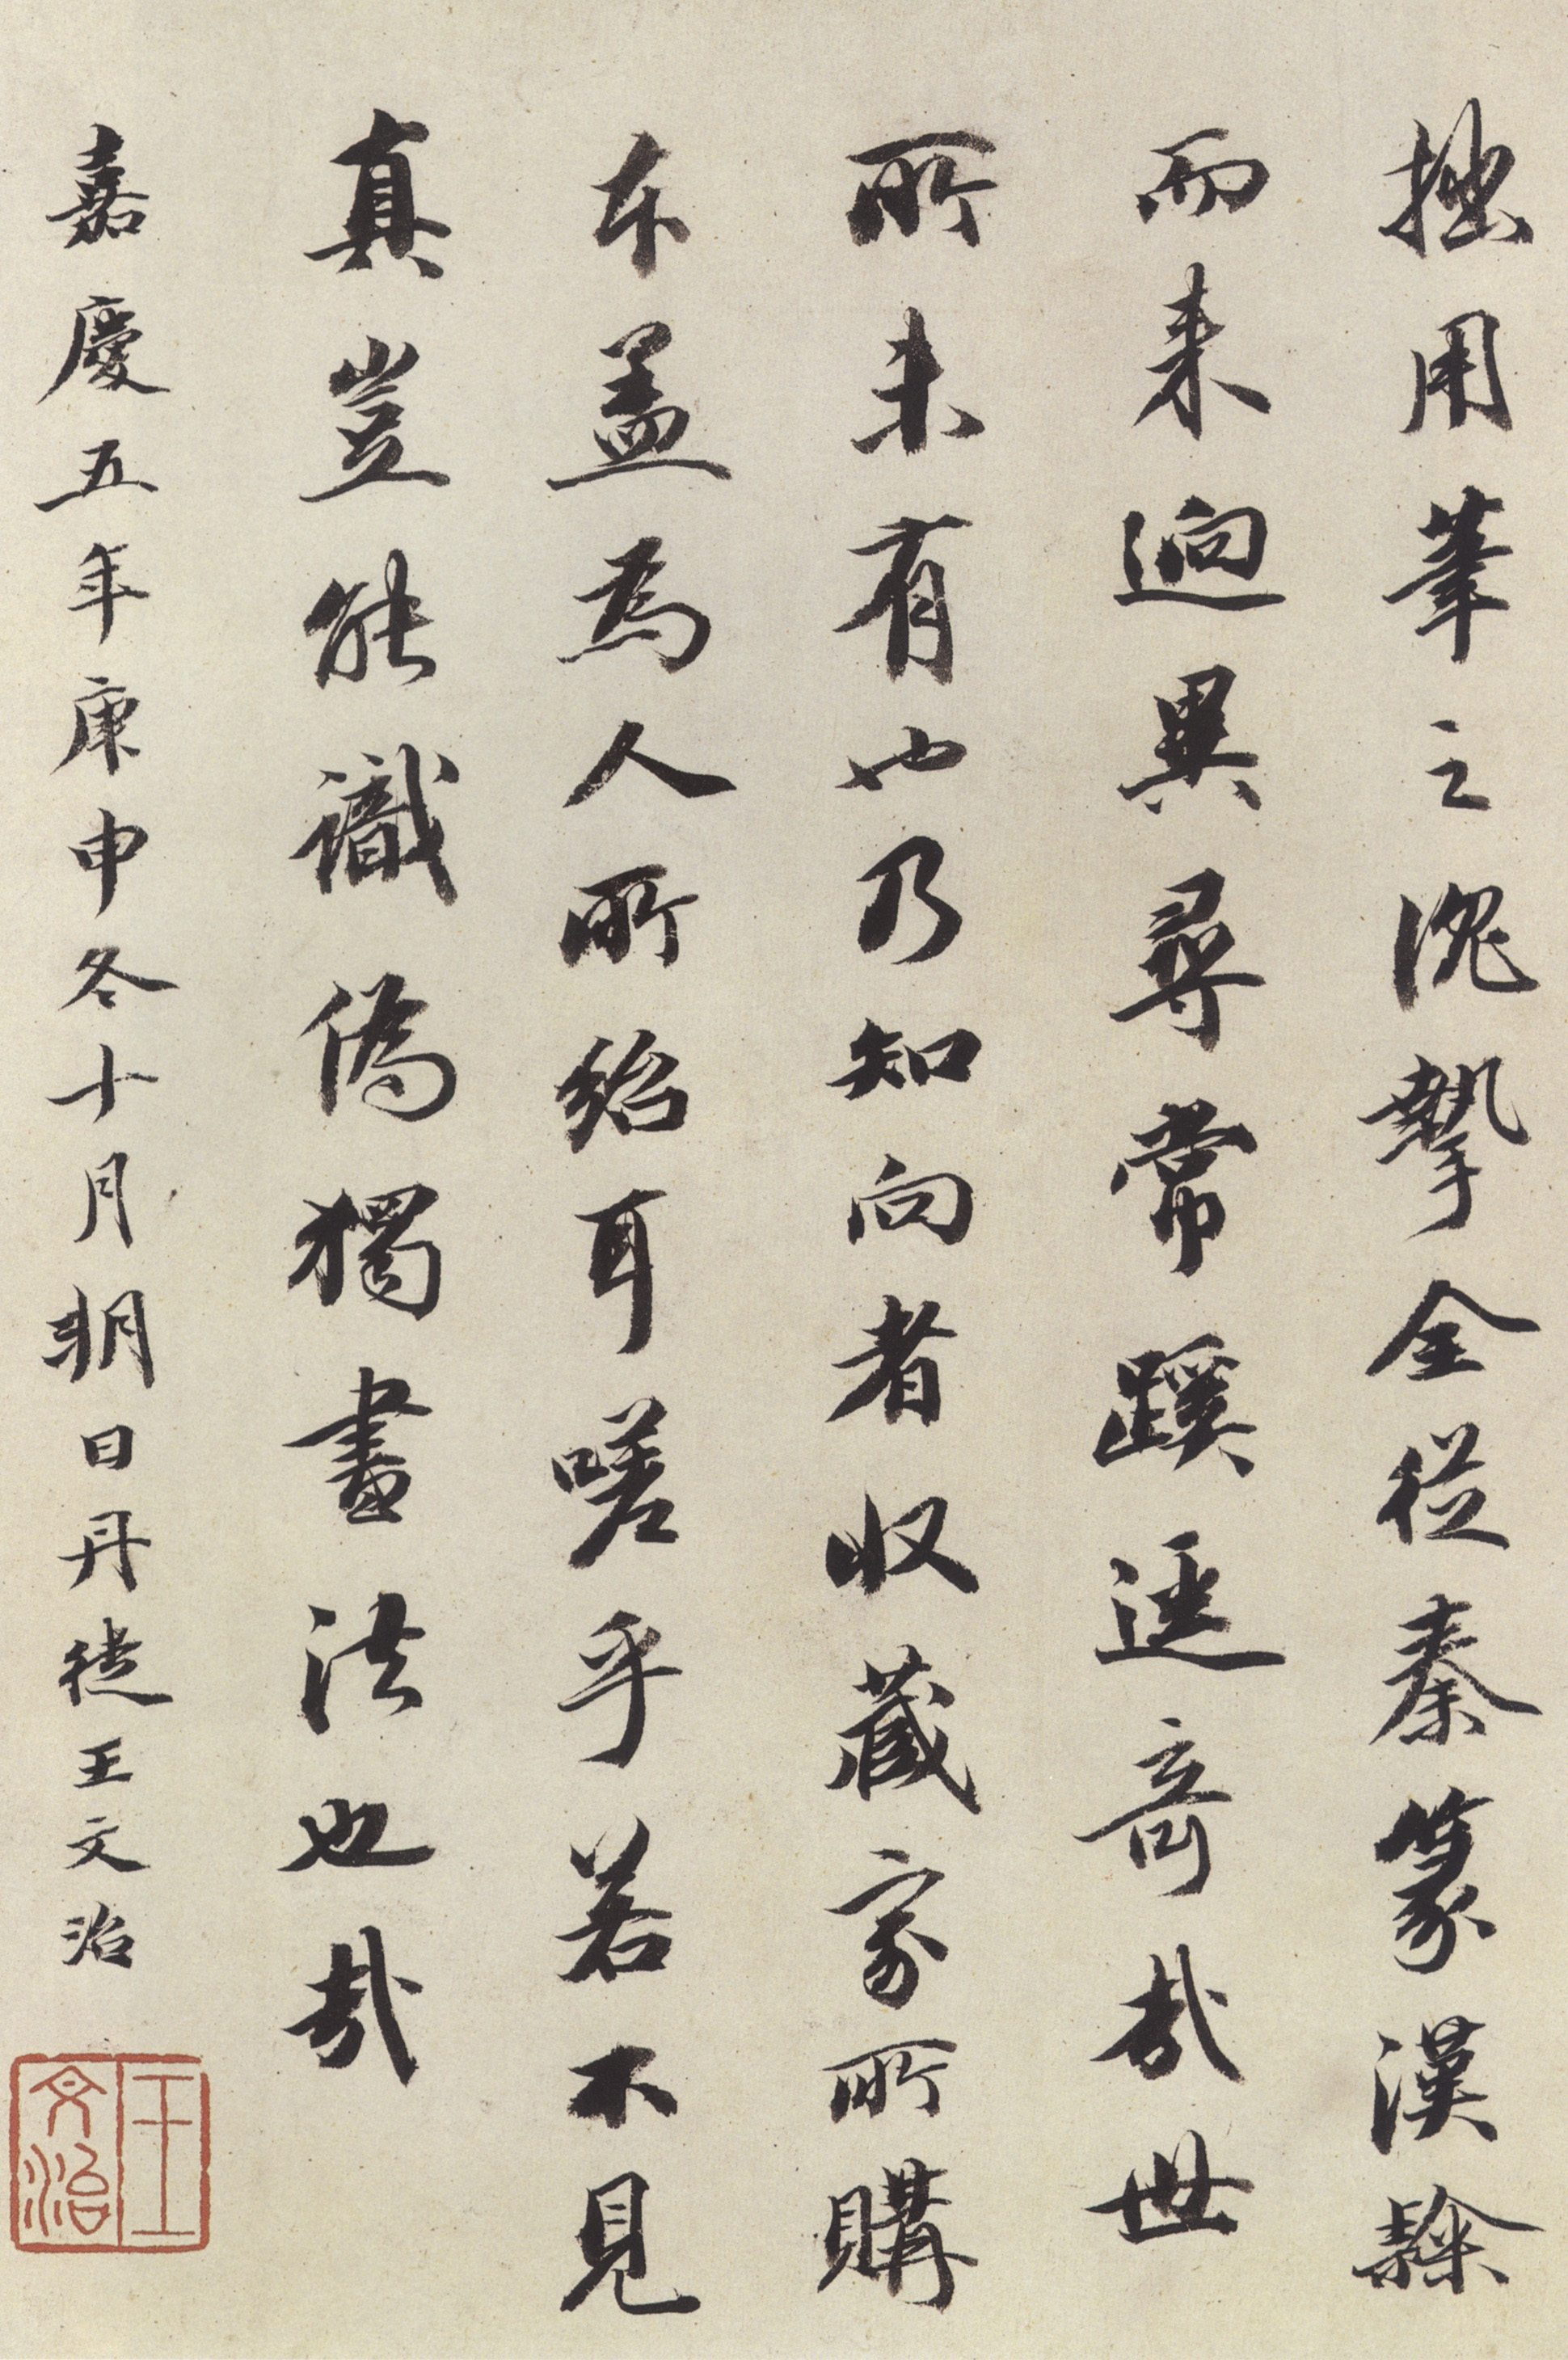 拙用筆之沈摯全從秦篆漢隸
而来迥異尋常蹊逕奇哉世
所未有也乃知向者収藏家所購
本盖為人所紿耳嗟乎若不見
真豈能識偽獨畫法也哉
嘉慶五年庚申冬十月朔日丹徒王文治
王文治